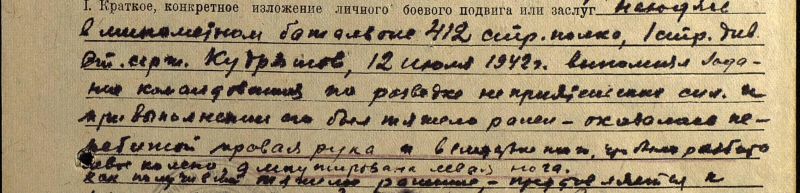 I. Краткое, конкретное изложение личного боевого подвига или заслуг Находясь
в минометном батальоне 412 стр. полка, 1 стр. див.
Ст. серж. Кудряшов, 12 июля 1942 г. выполняя зада-
ние командования по разведке неприятельских сил. и
при выполнении его был тяжело ранен – оказалась пе-
ребитой правая рука и в
левое колено, ампутирована левая нога.
как получивший тяжелое ранение, – представляется к